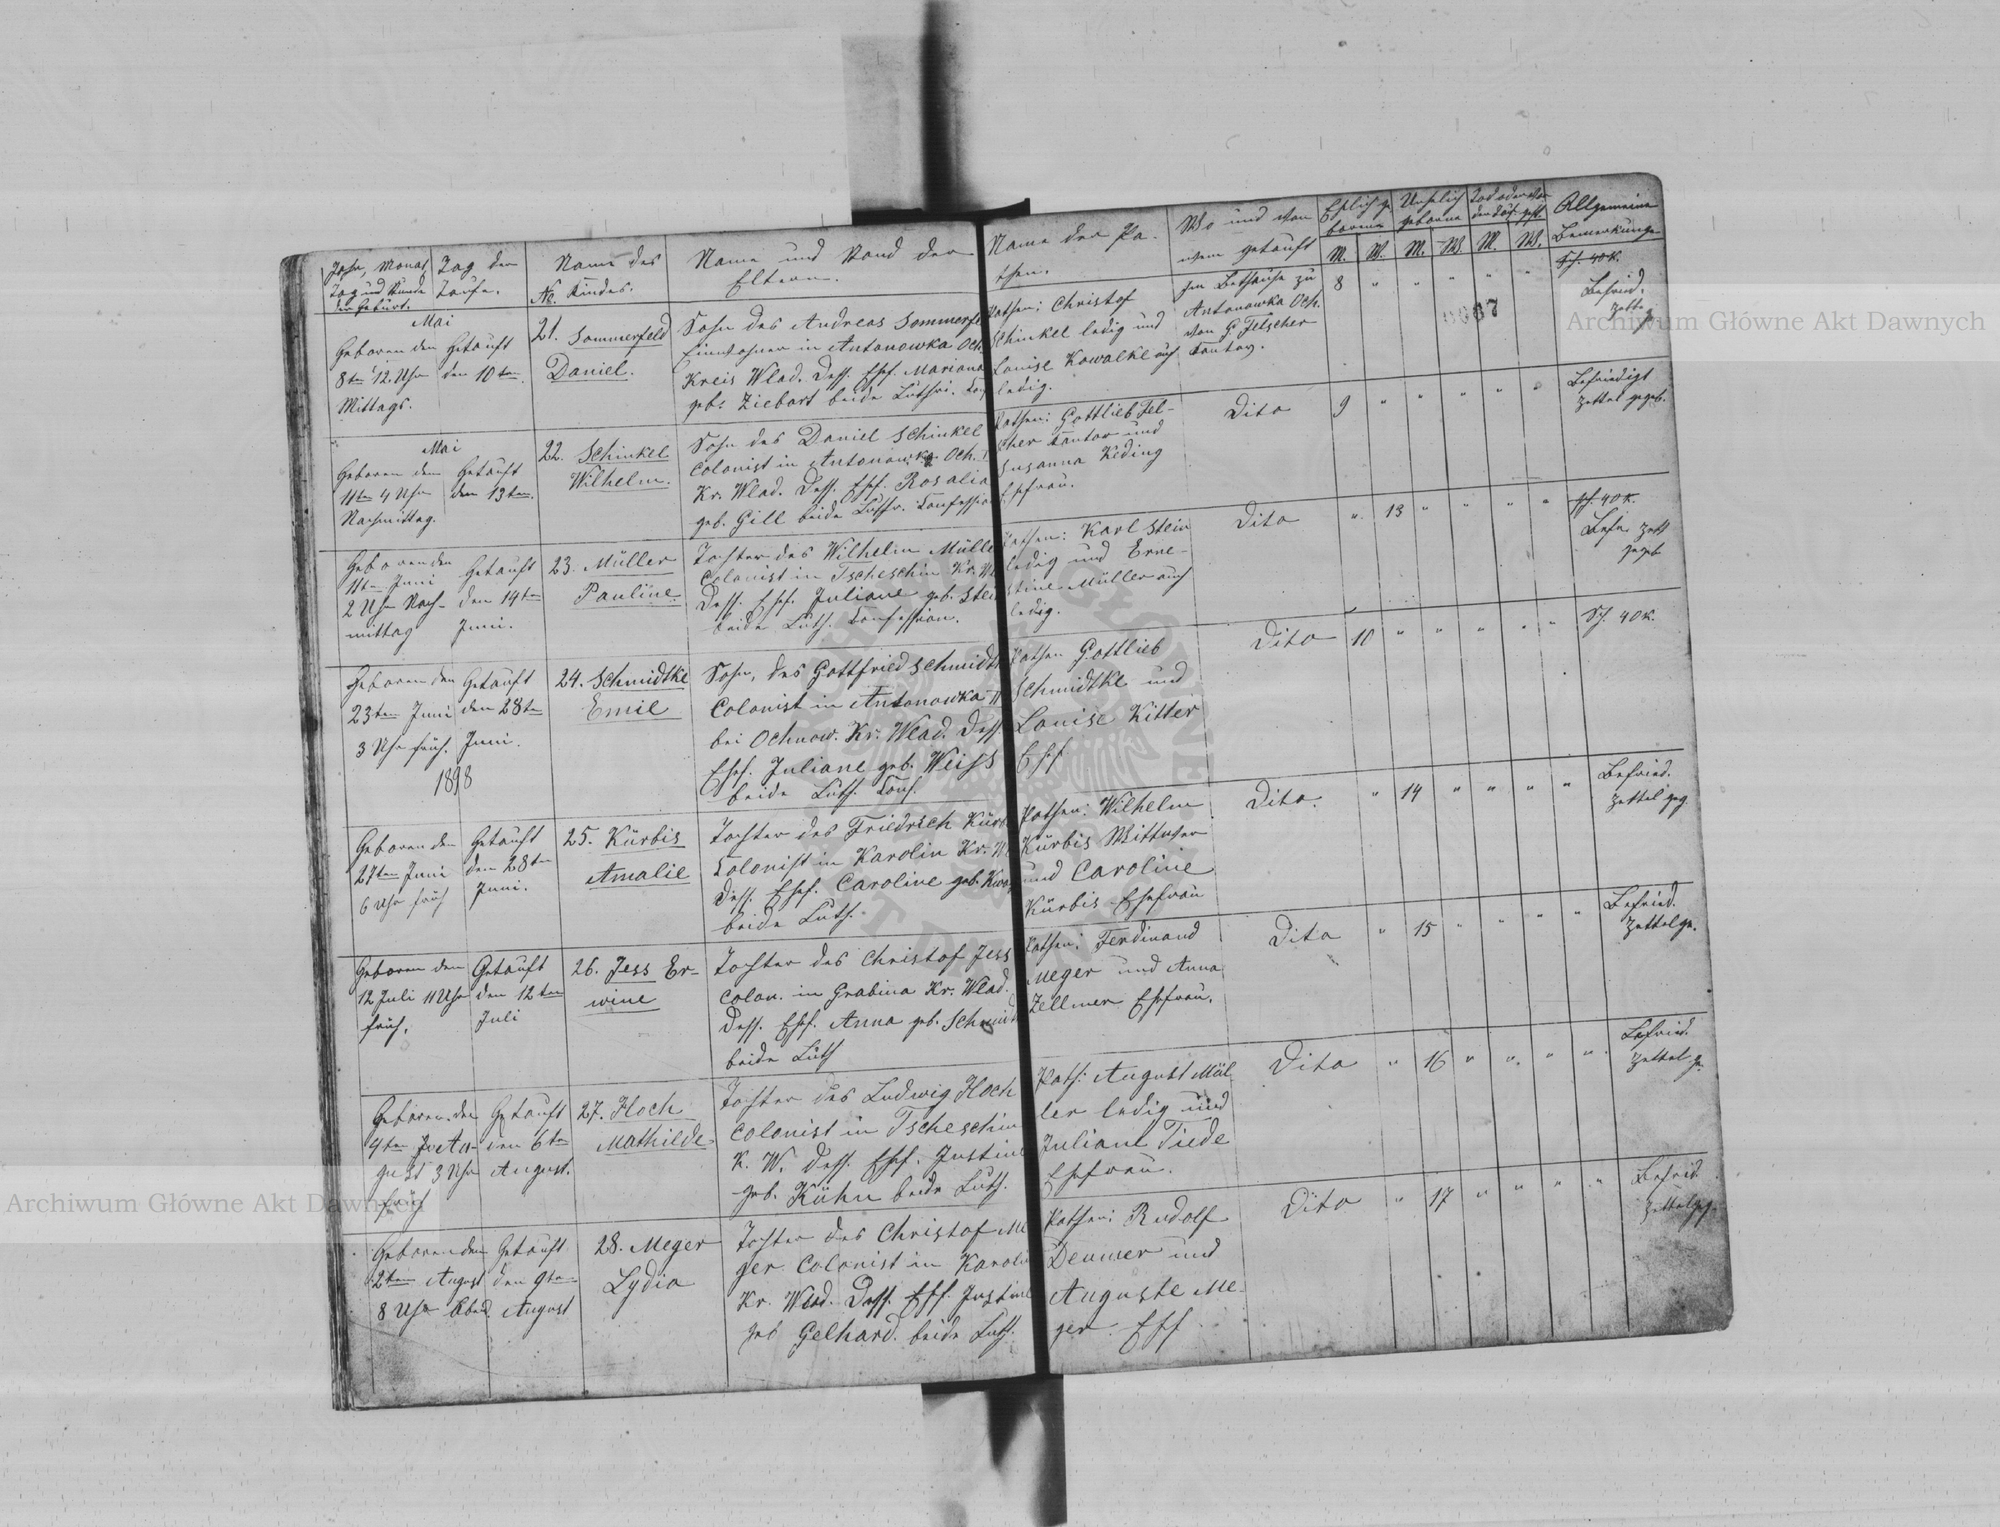 Jahr, Monat,
Tag und Stunde
der Geburt.
Tag der
Taufe.
Name des
No. Kindes.
Name und Stand der
Eltern.
Name der Pa-
then.
Wo und von
wem getauft
Ehlich ge
borene
Unehlich
geborene
M. W. M. W. M. W.
Allgemeine
Bemerkunge
Mai
Geboren den
8ten 12. Uhr
Mittags.
Getauft
den 10ten
21. Sommerfeld
Daniel.
Sohn des Andreas Sommerfe
Einwohner in Antonowka Och.
Kreis Wlad. Dess. Ehf. Mariana
geb. Ziebart beide Luthri.
Pathen: Christof
Schinkel ledig und
Louise Kowalke auch
ledig.
Im Bethause zu
Antonowka Och.
von G. Felscher
Kantor.
8 " " " " "
Sch. 40 K.
Befried.
Zettg
Mai
Geboren den
11ten 4 Uhr
Nachmittag.
Getauft
den 13ten.
22. Schinkel
Wilhelm.
Sohn des Daniel Schinkel
Colonist in Antonowka Och.
Kr. Wlad. Dess. Ehf. Rosalia
geb. Gill beide Luthr. Confession
Pathen: Gottlieb Fel-
scher Kantor und
Susanna Keding
Ehefrau.
Dito
9 " " " " "
Befriedigt
Zettel gegeb.
Geboren den
11ten Juni
2 Uhr Nach-
mittag
Getauft
den 14ten
Juni.
23. Müller
Pauline.
Tochter des Wilhelm Mülle
Colonist in Tscheschin Kr. W
Dess. Ehf. Juliane geb. Stei
beide Luth. Confession.
Pathen: Karl Stein
ledig und Erne-
stine Müller auch
ledig.
Dito
" 13 " " " "
Sch. 40 K.
Befr. Zett
gegeb
Geboren den
23ten Juni
3 Uhr früh.
Getauft
den 28ten
Juni.
1898
24. Schmidtke
Emil
Sohn, des Gottfried Schmidt
Colonist in Antonowka
bei Ochnow. Kr. Wlad. Dess.
Ehf. Juliane geb. Weiss
beide Luth. Conf.
Pathen Gottlieb
Schmidtke und
Louise Kitter
Ehf
Dito
10 " " " " "
Sch. 40 K.
Geboren den
27ten Juni
6 Uhr früh
Getauft
den 28ten
Juni.
25. Kürbis
Amalie
Tochter des Friedrich Kürb
Colonist in Karolin Kr. W
Dess. Ehf. Caroline geb.
beide Luth.
Pathen: Wilhelm
Kürbis Wittwer
und Caroline
Kürbis Ehefrau
Dito.
" 14 " " " "
Befried.
Zettel geg.
Geboren den
12 Juli 11 Uhr
früh.
Getauft
den 12ten
Juli
26. Jess Er-
wine
Tochter des Christof Jess
Colon. in Grabina Kr. Wlad.
Dess. Ehf. Anna geb. Schmidt
beide Luth
Pathen: Ferdinand
Meger und Anna
Zellmer Ehefrau.
Dito
" 15 " " " "
Befried.
Zettel ge.
Geboren den
4ten Au-
gust 3 Uhr
früh
Getauft
den 6ten
August.
27. Hoch
Mathilde
Tochter des Ludwig Hoch
Colonist in Tscheschin
K. W. Dess. Ehf. Justine
geb. Kühn beide Luth.
Path: August Mül
ler ledig und
Juliane Tiede
Ehefrau.
Dito
" 16 " " " "
Befried.
Zettel ge.
Geboren den
2ten August
8 Uhr Abend
Getauft
den 9ten
August
28. Meger
Lydia
Tochter des Christof Me
ger Colonist in Karolin
Kr. Wlad. Dess. Ehf. Justine
geb Gelhard. beide Luth.
Pathen: Rudolf
Demmer und
Auguste Me-
ger. Ehf
Dito
" 17 " " " "
Befried.
Zettel geg.
Archiwum Główne Akt Dawnych
Archiwum Główne Akt Dawnych